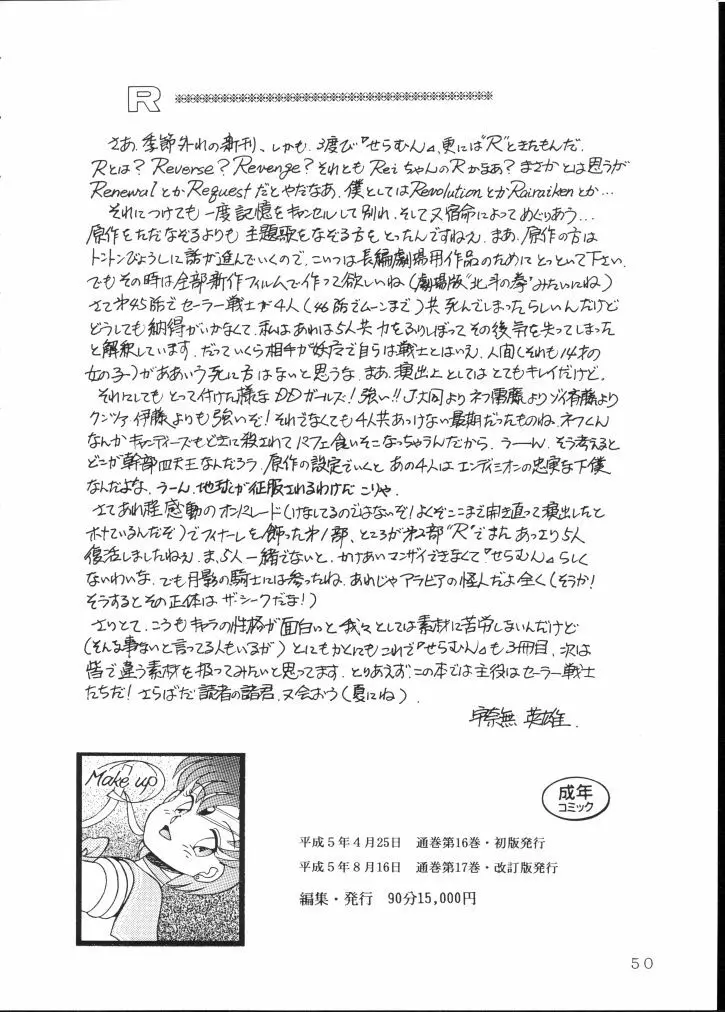 R
さあ、季節外れの新刊、しかも、3度び『せらむん』、更には"R"ときたもんだ。
Rとは? Reverse? Revenge? それとも ReiちゃんのRかなあ? まさかとは思うが
RenewalとかRequestだとやだなあ。僕としてはRevolutionとかRairaikenとか…
それにつけても一度記憶をキャンセルして別れ、そして又宿命によってめぐりあう…
原作をただなぞるよりも主題歌をなぞる方をとったんですねえ。まあ、原作の方は
トントンびょうしに話が進んでいくので、こいつは長編劇場用作品のためにとっといて下さい。
でもその時は全部新作フィルムで作って欲しいね(劇場版"北斗の拳"みたいにね)
さて第45話でセーラー戦士が4人(46話でムーンまで)共死んでしまったらしいんだけど
どうしても納得がいかなくて、私はあれは5人共力をふりしぼってその後気を失ってしまった
と解釈しています。だっていくら相手が妖魔で自らは戦士とはいえ、人間(それも14才の
女の子)がああいう死に方はないと思うな。まあ、演出上としてはとてもキレイだけど。
それにしてもとって付けた様なDDガールズ!強い!!J大同よりネフ雷藤よりゾイ斉藤より
クンツァ伊藤よりも強いぞ!それでなくても4人共あっけない最期だったものね。ネフくん
なんかキャンディーズもどきに殺されてパフェ食いそこなっちゃうんだから、うーん、そう考えると
どこが幹部四天王なんだろう。原作の設定でいくとあの4人はエンディミオンの忠実な下僕
なんだよな、うーん、地球が征服されるわけだこりゃ。
さてあれ程感動のオンパレード(けなしてるのではないぞ!よくぞここまで開き直って演出したと
ホメているんだぞ)でフィナーレを飾った第1部、ところが第2部"R"でまたあっさり5人
復活しましたねえ。ま、5人一緒でないと、かけあいマンザイできなくて『せらむん』らしく
ないわいな。でも月影の騎士には参ったね。あれじゃアラビアの怪人だよ全く(そうか!
そうするとその正体はザ・シークだな!)
さりとて、こうもキャラの性格が面白いと我々としては素材に苦労しないんだけど
(そんな事ないと言ってる人もいるが)とにもかくにもこれで『せらむん』も3冊目、次は
皆で違う素材を扱ってみたいと思ってます。とりあえず、この本では主役はセーラー戦士
たちだ!さらばだ読者の諸君、又会おう(夏にね)
宇奈無 英雄.
Make up
成年
コミック
平成5年4月25日 通巻第16巻・初版発行
平成5年8月16日 通巻第17巻・改訂版発行
編集・発行 90分15,000円
50